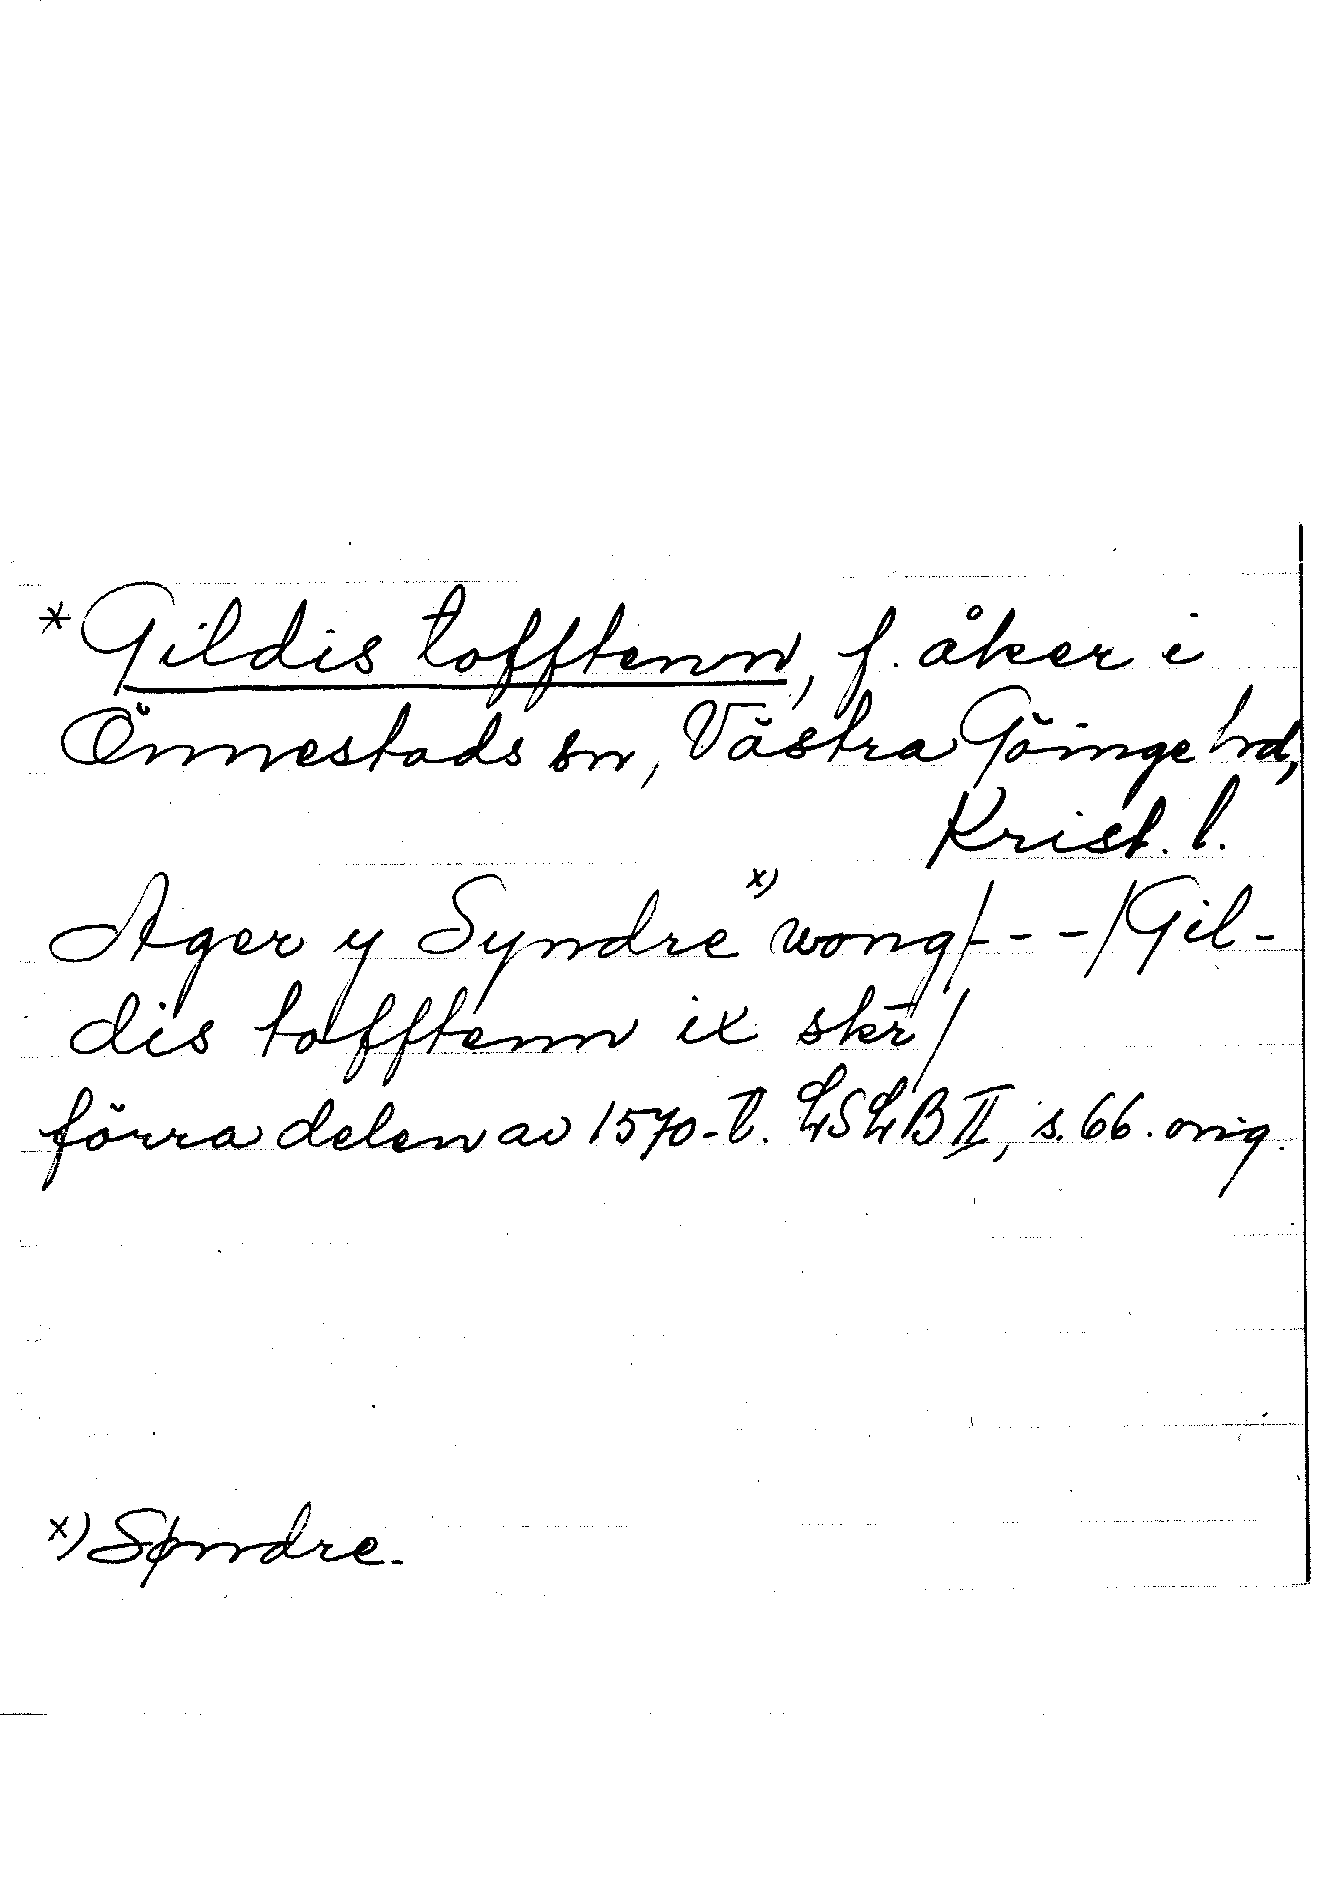 *Gildis tofftenn, f. åker i
Önnestads sn, Västra Göinge hd,
Krist. l.
Ager y Syndre x) wong/---/Gil-
dis tofftenn ix skr̄/
förra delen av 1570-t. LSLB II, s. 66. orig.
x) Søndre.